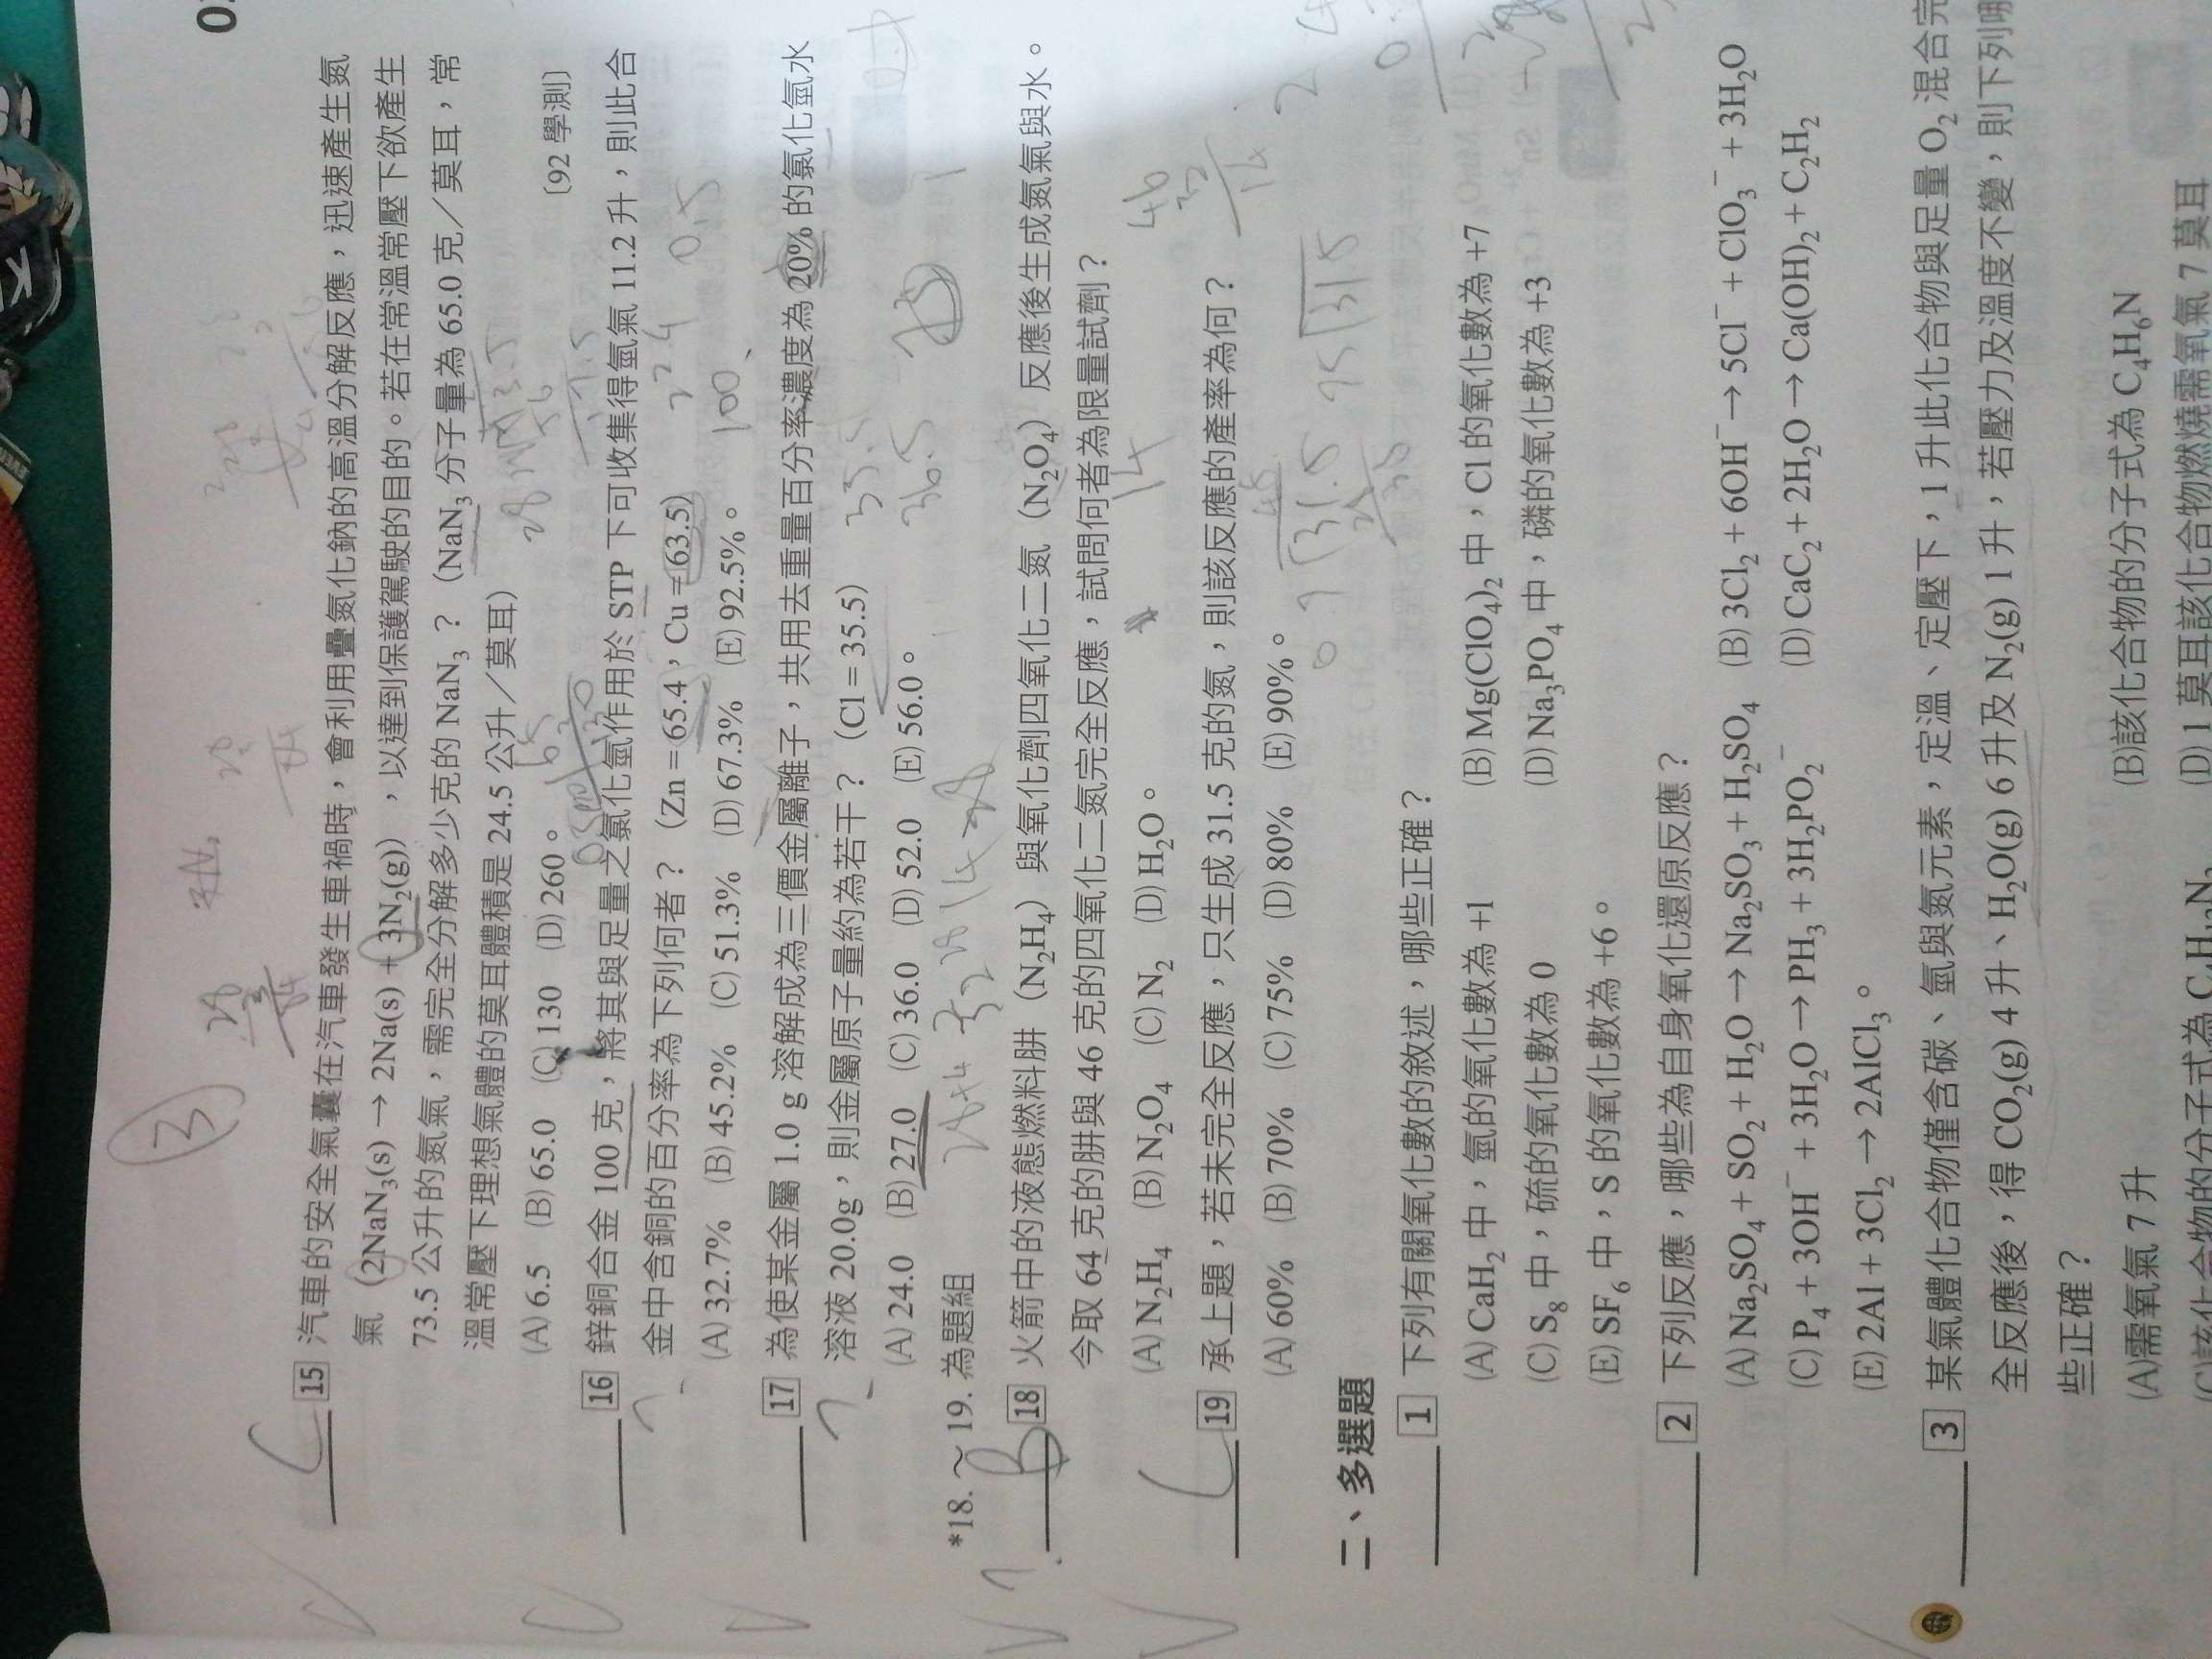 ③
C 15 汽車的安全氣囊在汽車發生車禍時，會利用疊氮化鈉的高溫分解反應，迅速產生氮
氣（2NaN₃(s) → 2Na(s) + 3N₂(g)），以達到保護駕駛的目的。若在常溫常壓下欲產生
73.5 公升的氮氣，需完全分解多少克的 NaN₃？（NaN₃ 分子量為 65.0 克／莫耳，常
溫常壓下理想氣體的莫耳體積是 24.5 公升／莫耳）
(A) 6.5 (B) 65.0 (C) 130 (D) 260。 〔92 學測〕
16 鋅銅合金 100 克，將其與足量之氯化氫作用於 STP 下可收集得氫氣 11.2 升，則此合
金中含銅的百分率為下列何者？（Zn = 65.4，Cu = 63.5）
22.4 0.5
(A) 32.7% (B) 45.2% (C) 51.3% (D) 67.3% (E) 92.5%。
100
17 為使某金屬 1.0 g 溶解成為三價金屬離子，共用去重量百分率濃度為 20% 的氯化氫水
溶液 20.0g，則金屬原子量約為若干？（Cl = 35.5）
35.5
(A) 24.0 (B) 27.0 (C) 36.0 (D) 52.0 (E) 56.0。
36.5
*18. ～ 19. 為題組
B 18 火箭中的液態燃料肼（N₂H₄）與氧化劑四氧化二氮（N₂O₄）反應後生成氮氣與水。
今取 64 克的肼與 46 克的四氧化二氮完全反應，試問何者為限量試劑？
(A) N₂H₄ (B) N₂O₄ (C) N₂ (D) H₂O。
14
46
C 19 承上題，若未完全反應，只生成 31.5 克的氮，則該反應的產率為何？
(A) 60% (B) 70% (C) 75% (D) 80% (E) 90%。
二、多選題
1 下列有關氧化數的敘述，哪些正確？
(A) CaH₂ 中，氫的氧化數為 +1 (B) Mg(ClO₄)₂ 中，Cl 的氧化數為 +7
(C) S₈ 中，硫的氧化數為 0 (D) Na₃PO₄ 中，磷的氧化數為 +3
(E) SF₆ 中，S 的氧化數為 +6。
2 下列反應，哪些為自身氧化還原反應？
(A) Na₂SO₄ + SO₂ + H₂O → Na₂SO₃ + H₂SO₄ (B) 3Cl₂ + 6OH⁻ → 5Cl⁻ + ClO₃⁻ + 3H₂O
(C) P₄ + 3OH⁻ + 3H₂O → PH₃ + 3H₂PO₂⁻ (D) CaC₂ + 2H₂O → Ca(OH)₂ + C₂H₂
(E) 2Al + 3Cl₂ → 2AlCl₃。
3 某氣體化合物僅含碳、氫與氮元素，定溫、定壓下，1 升此化合物與足量 O₂ 混合完
全反應後，得 CO₂(g) 4 升、H₂O(g) 6 升及 N₂(g) 1 升，若壓力及溫度不變，則下列哪
些正確？
(A)需氧氣 7 升 (B)該化合物的分子式為 C₄H₆N
(C)該化合物的分子式為 (D) 1 莫耳該化合物燃燒需氧氣 7 莫耳